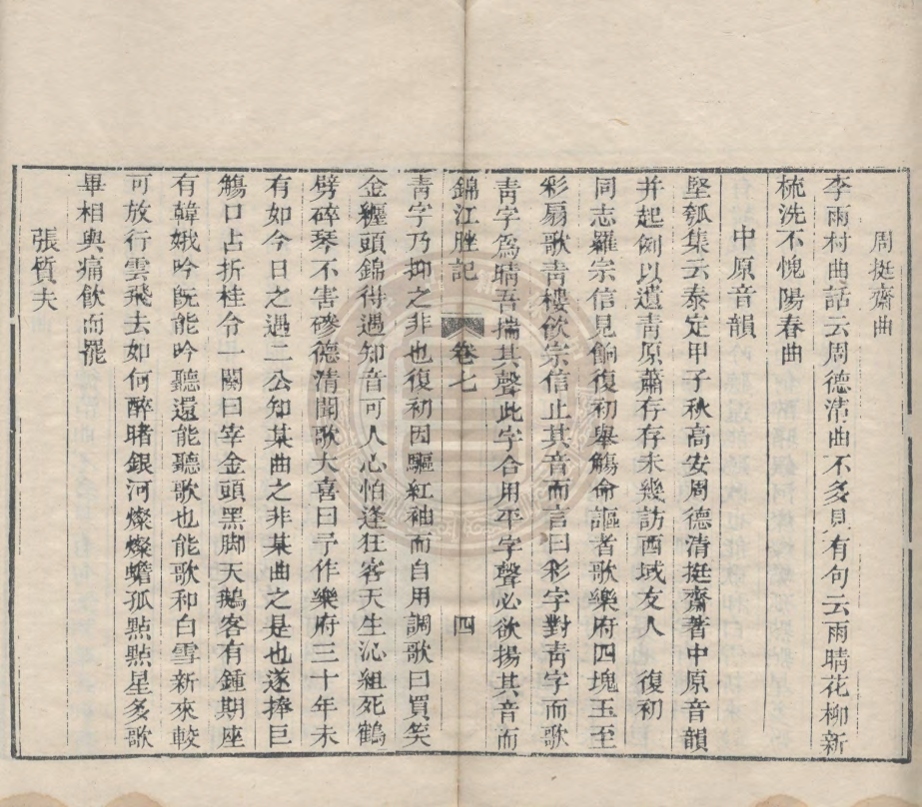 周挺齋曲
李雨村曲話云周德清曲不多見有句云雨晴花柳新
梳洗不愧陽春曲
中原音韻
堅瓠集云泰定甲子秋高安周德清挺齋著中原音韻
并起例以遺青原蕭存存未幾訪西域友人 復初
同志羅宗信見餉復初舉觴命謳者歌樂府四塊玉至
彩扇歌青樓飲宗信止其音而言曰彩字對青字而歌
青字為晴吾揣其聲此字合用平字聲必欲揚其音而
錦江脞記 卷七 四
青字乃抑之非也復初因驅紅袖而自用調歌曰買笑
金纏頭錦得遇知音可人心怕逢狂客天生沁組死鶴
劈碎琴不害磣德清聞歌大喜曰予作樂府三十年未
有如今日之遇二公知某曲之非某曲之是也遂捧巨
觴口占折桂令一闋曰宰金頭黑脚天鵝客有鍾期座
有韓娥吟旣能吟聽還能聽歌也能歌和白雪新來較
可放行雲飛去如何醉睹銀河燦燦蟾孤點點星多歌
畢相與痛飲而罷
張質夫